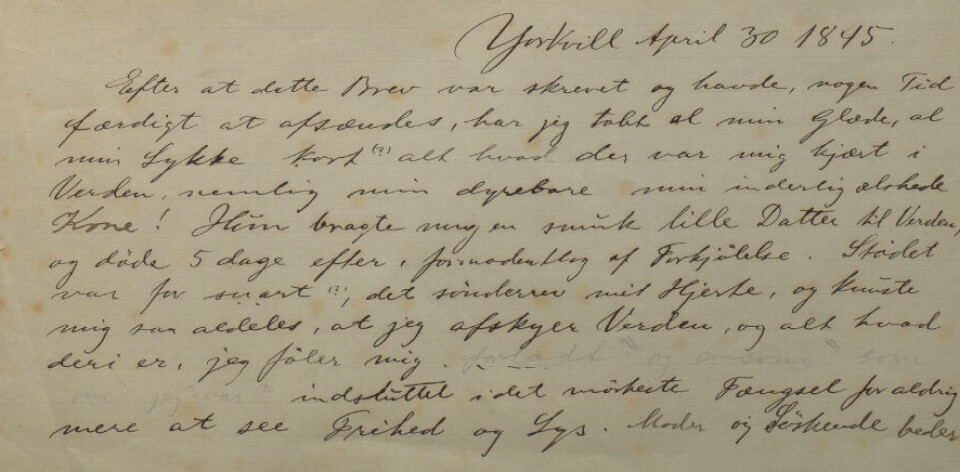 Yorkvill April 30 1845.
Efter at dette Brev var skrevet og havde, nogen Tid
færdigt at afsændes, har jeg tabt al min Glæde, al
min Lykke kort (?) alt hvad der var mig kjært i
Verden, nemlig min dyrebare min inderlig elskede
Kone! Hun bragte mig en smuk lille Datter til Verden,
og døde 5 dage efter, formodentlig af Forkjölelse. Stødet
var for svart (?), det sönderrev mit Hjerte, og knuste
mig saa aldeles, at jeg afskyer Verden, og alt hvad
deri er, jeg föler mig. forladt " og ensom " som
om jeg var indsluttet i det mörkeste Fængsel for aldrig
mere at see Frihed og Lys. Moder og Söskende beder